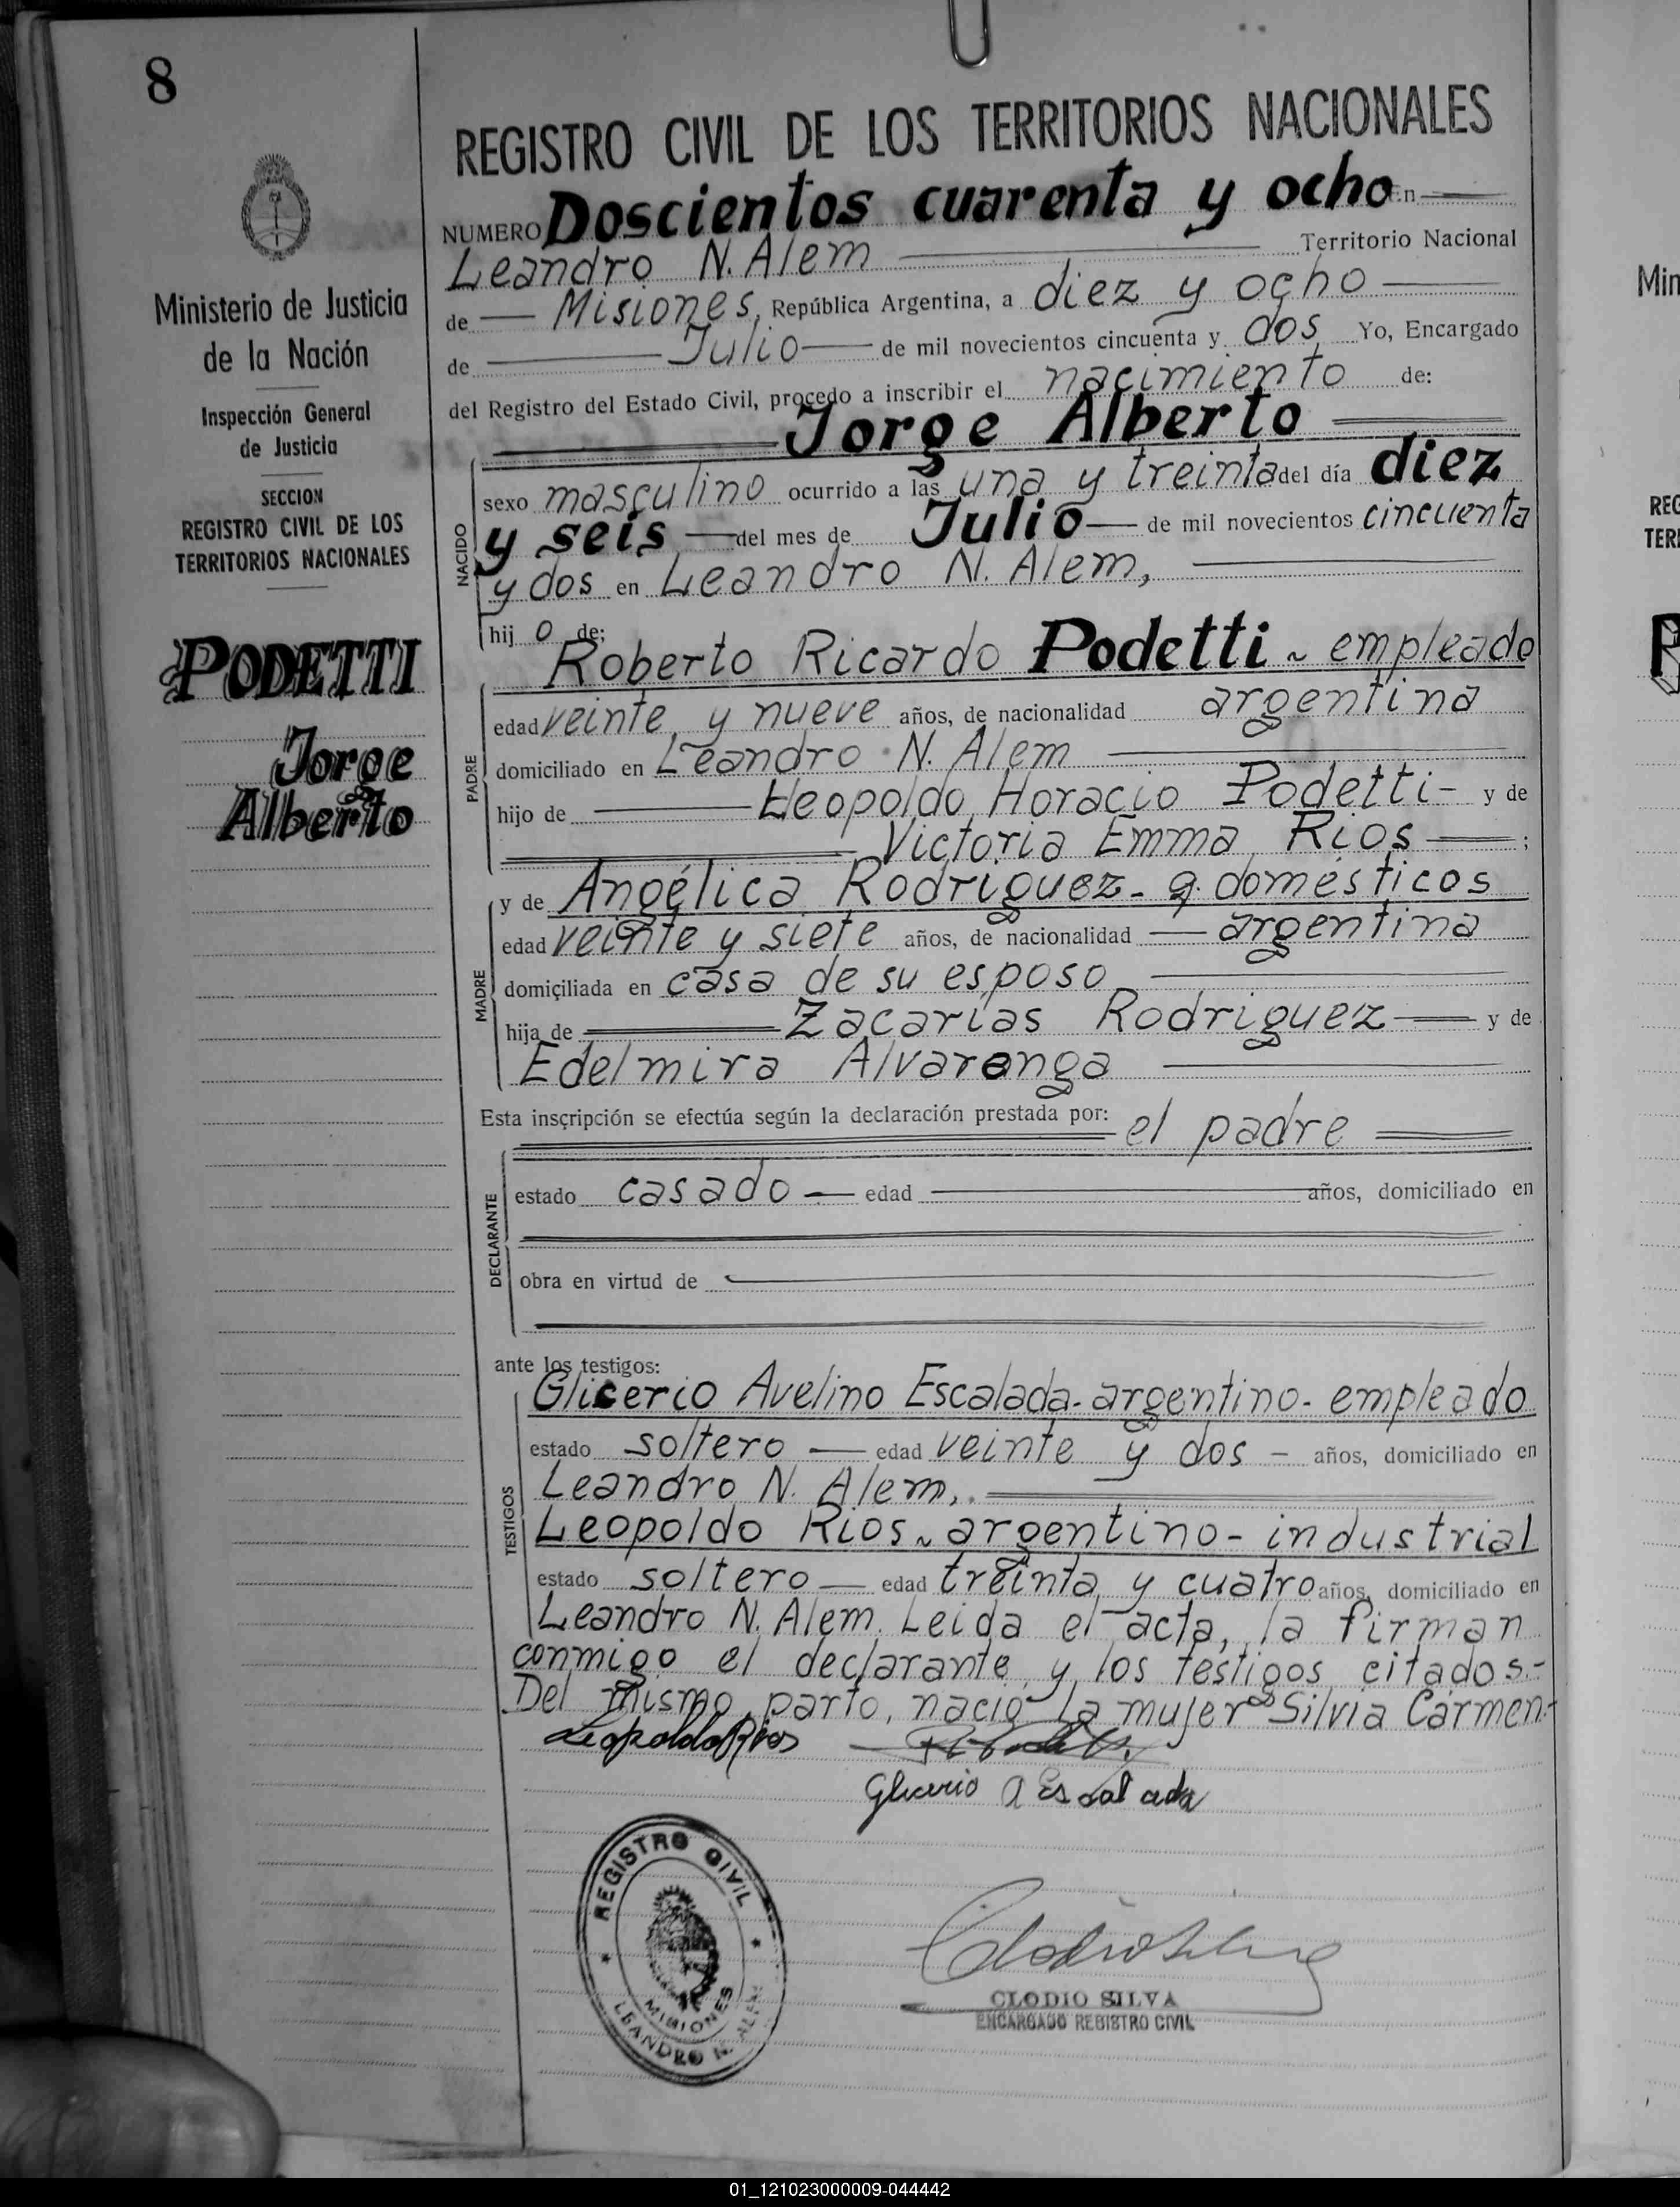 8
REGISTRO CIVIL DE LOS TERRITORIOS NACIONALES
NUMERO Doscientos cuarenta y ocho En
Leandro N. Alem Territorio Nacional
de Misiones, República Argentina, a diez y ocho
de Julio de mil novecientos cincuenta y dos Yo, Encargado
del Registro del Estado Civil, procedo a inscribir el nacimiento de:
Jorge Alberto
NACIDO
sexo masculino ocurrido a las una y treinta del día diez
y seis del mes de Julio de mil novecientos cincuenta
y dos en Leandro N. Alem,
hij o de:
PADRE
Roberto Ricardo Podetti ~ empleado
edad veinte y nueve años, de nacionalidad argentina
domiciliado en Leandro N. Alem
hijo de Leopoldo Horacio Podetti - y de
Victoria Emma Rios ;
MADRE
y de Angélica Rodriguez - q. domésticos
edad veinte y siete años, de nacionalidad argentina
domiciliada en casa de su esposo
hija de Zacarías Rodriguez y de
Edelmira Alvarenga
Esta inscripción se efectúa según la declaración prestada por: el padre
DECLARANTE
estado casado edad años, domiciliado en
obra en virtud de
ante los testigos:
TESTIGOS
Glicerio Avelino Escalada - argentino - empleado
estado soltero edad veinte y dos - años, domiciliado en
Leandro N. Alem,
Leopoldo Rios ~ argentino - industrial
estado soltero edad treinta y cuatro años, domiciliado en
Leandro N. Alem. Leida el acta, la firman
conmigo el declarante y los testigos citados.-
Del mismo parto, nació la mujer Silvia Carmen.-
Leopoldo Rios
Glicerio A Escalada
REGISTRO CIVIL
MISIONES
LEANDRO N. ALEM
CLODIO SILVA
ENCARGADO REGISTRO CIVIL
Ministerio de Justicia
de la Nación
Inspección General
de Justicia
SECCION
REGISTRO CIVIL DE LOS
TERRITORIOS NACIONALES
PODETTI
Jorge
Alberto
Min
REG
TERR
P
01_121023000009-044442